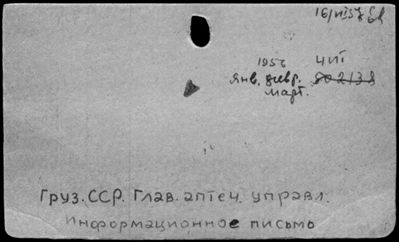 16/VII57
1956 4 VII
янв. февр. 80 2138
март.
Груз. ССР. Глав. аптеч. управл.
Информационное письмо